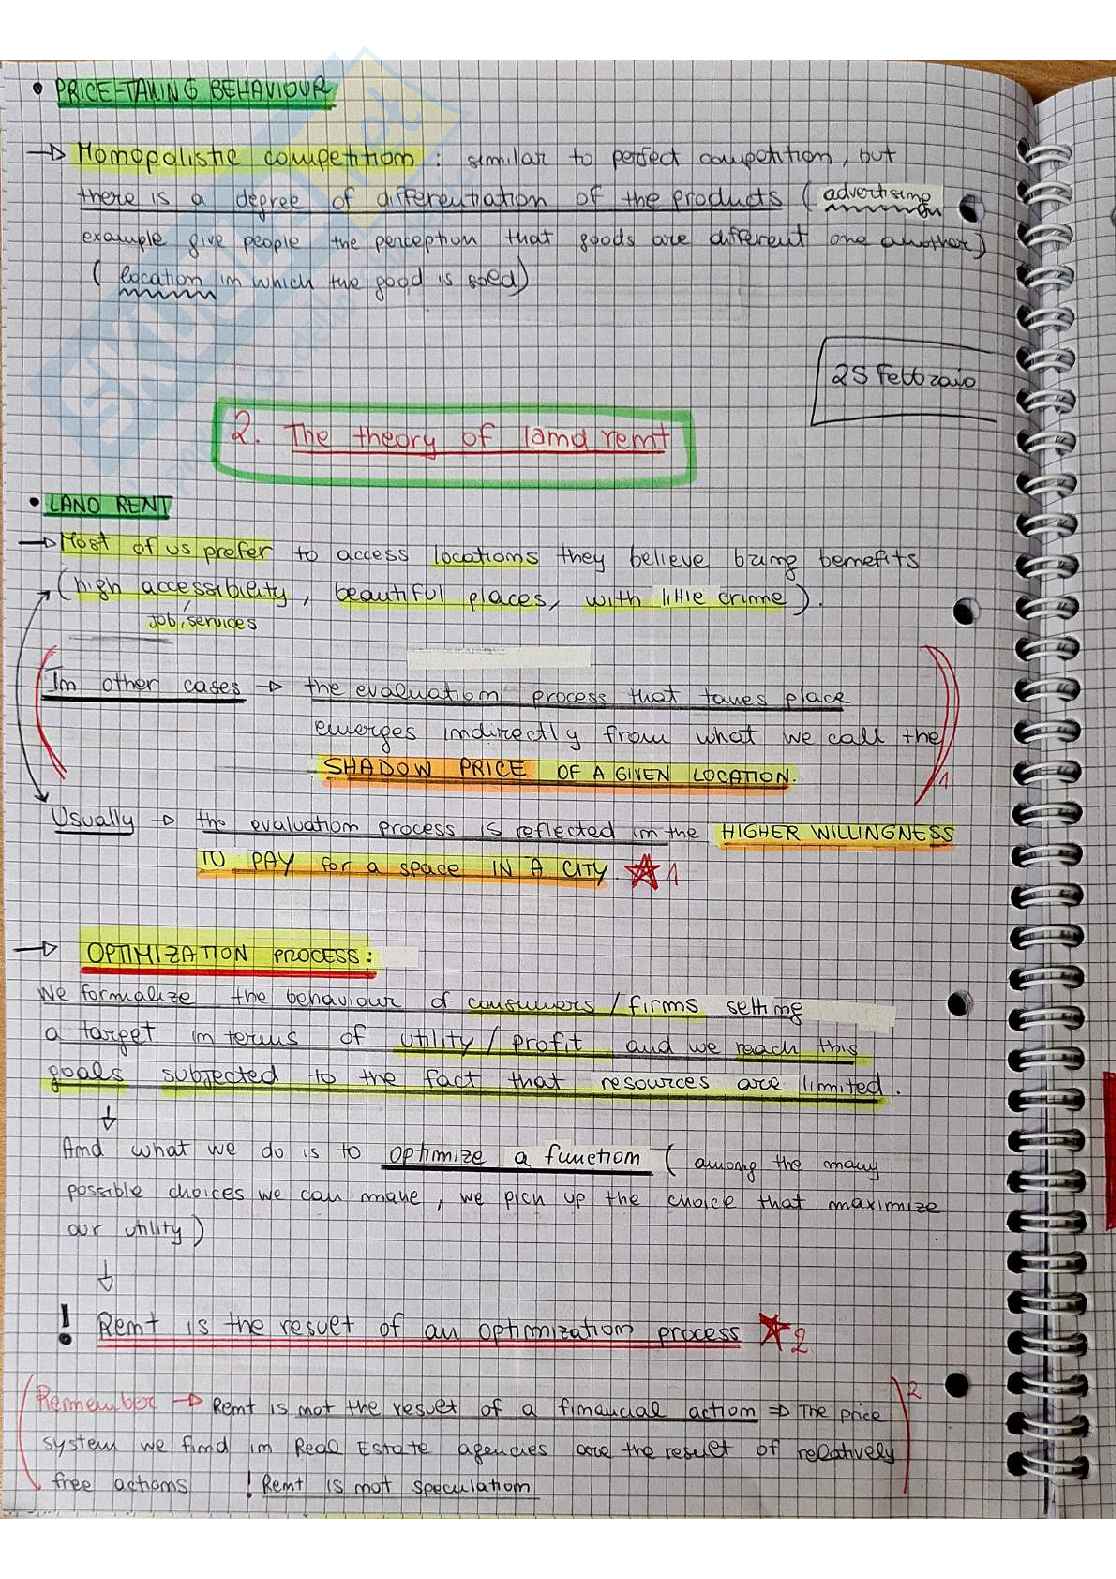 • PRICE-TAKING BEHAVIOUR
→ Monopolistic competition : similar to perfect competition, but
there is a degree of differentiation of the products ( advertising
example give people the perception that goods are different one another)
( location in which the good is sold)
25 Febbraio
2. The theory of land rent
• LAND RENT
→ Most of us prefer to access locations they believe bring benefits
(high accessibility, beautiful places, with little crime).
job, services
In other cases → the evaluation process that takes place
emerges indirectly from what we call the
SHADOW PRICE OF A GIVEN LOCATION. 1
Usually → the evaluation process is reflected in the HIGHER WILLINGNESS
TO PAY for a space IN A CITY ☆ 1
→ OPTIMIZATION PROCESS:
We formalize the behaviour of consumers / firms setting
a target in terms of utility / profit and we reach this
goals subjected to the fact that resources are limited.
↓
And what we do is to optimize a function ( among the many
possible choices we can make, we pick up the choice that maximize
our utility)
↓
! Rent is the result of an optimization process ★ 2
Remember → Rent is not the result of a financial action ⇒ The price 2
system we find in Real Estate agencies are the result of relatively
free actions ! Rent is not speculation